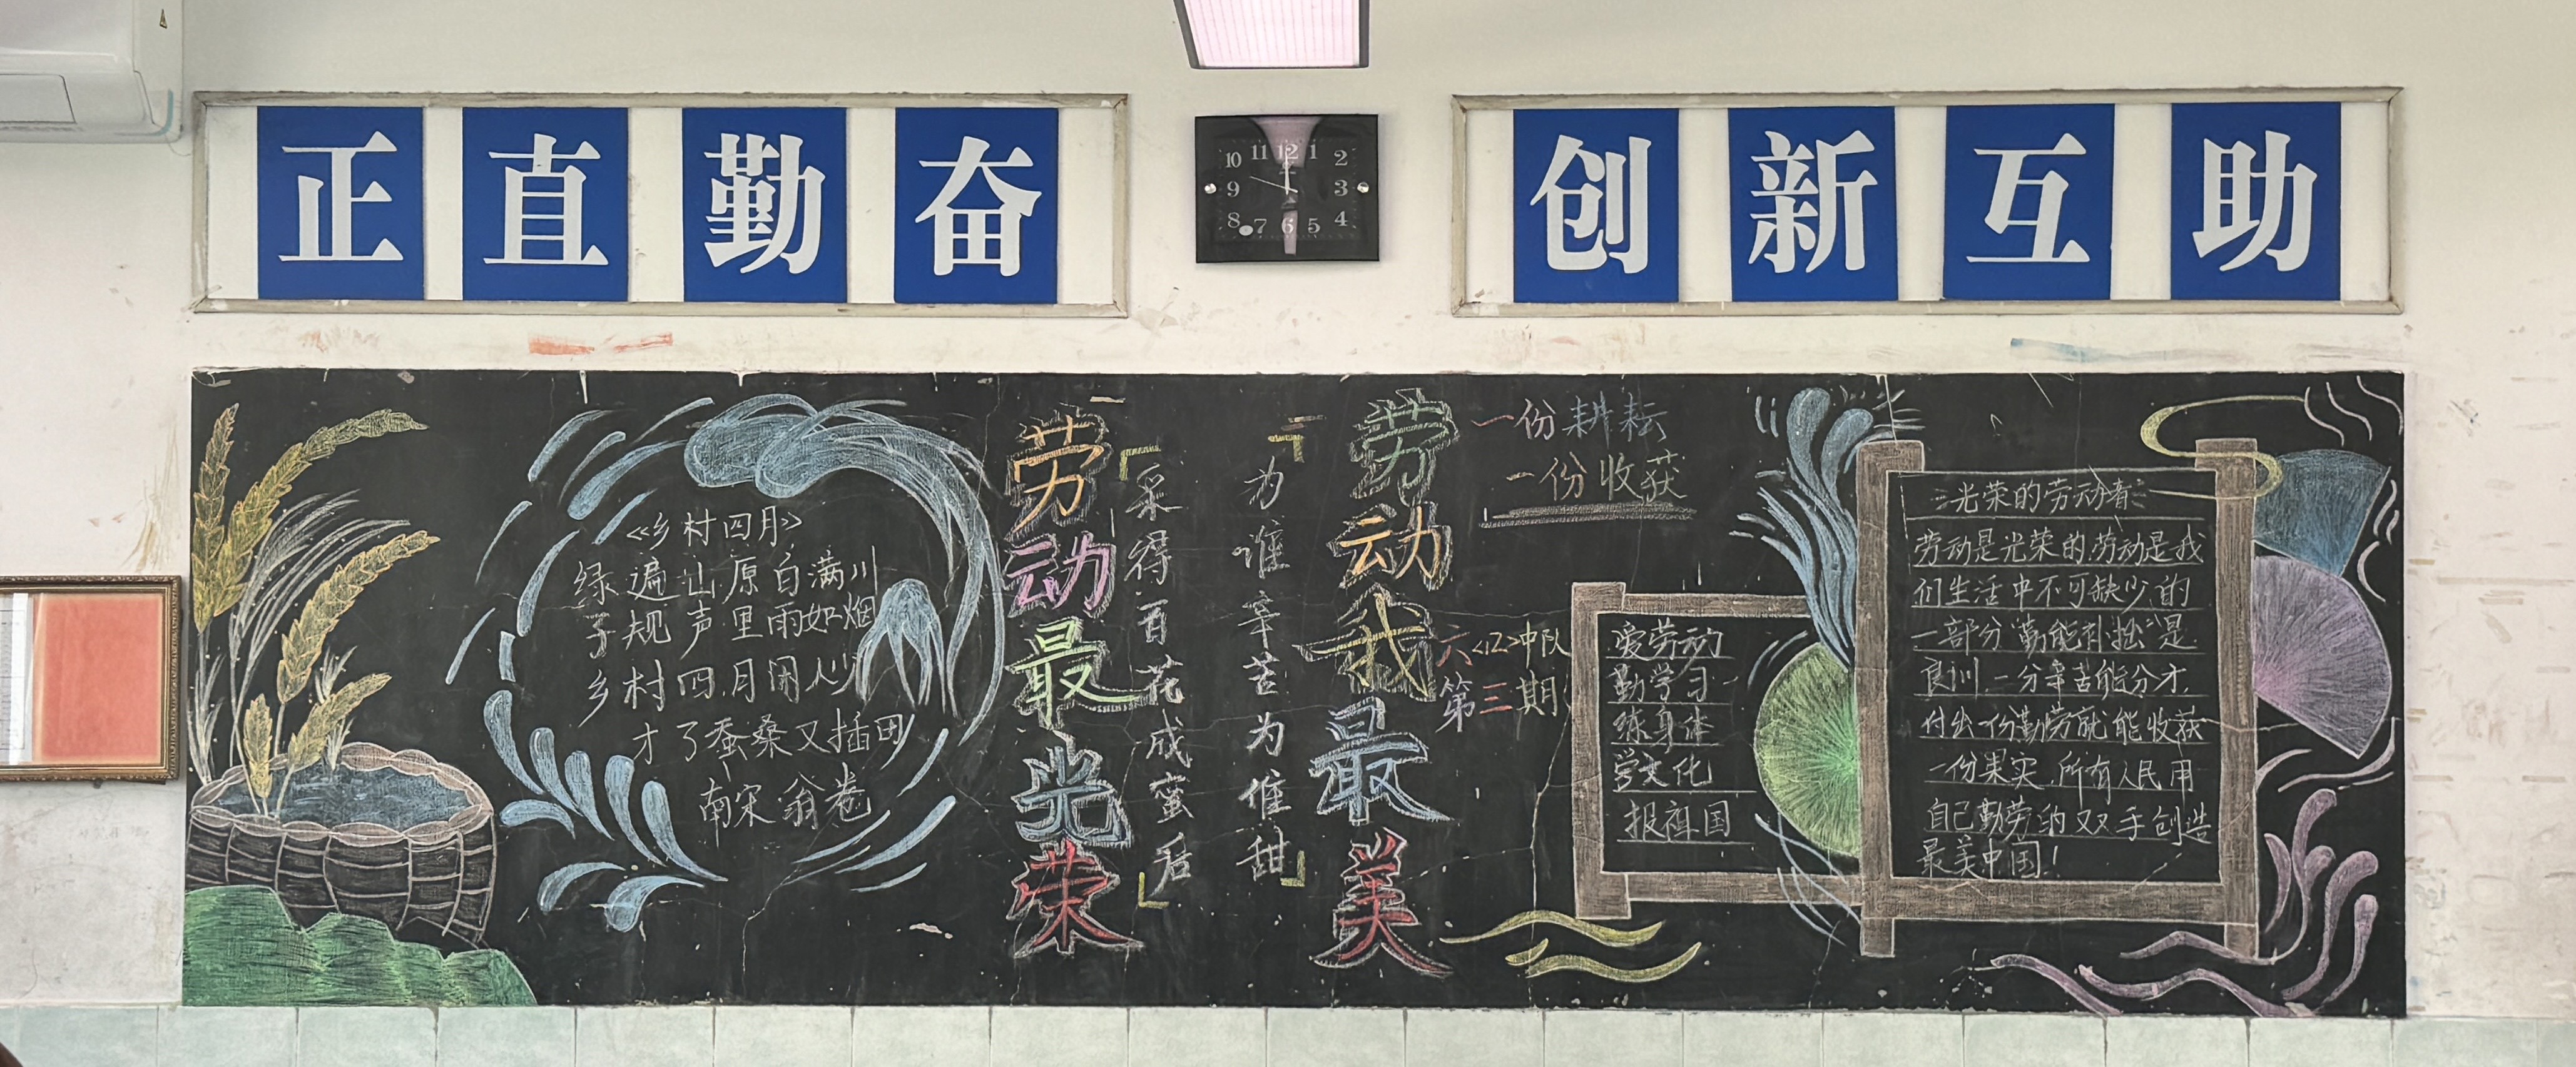 正直勤奋
创新互助
10 11 12 1 2
9 3
8 7 6 5 4
《乡村四月》
绿遍山原白满川
子规声里雨如烟
乡村四月闲人少
才了蚕桑又插田
南宋 翁卷
劳动最光荣
「采得百花成蜜后
为谁辛苦为谁甜」
劳动我最美
一份耕耘
一份收获
六<2>中队
第三期
爱劳动
勤学习
练身体
学文化
报祖国
光荣的劳动者
劳动是光荣的,劳动是我
们生活中不可缺少的
一部分"勤能补拙"是
良训,一分辛苦能分才,
付出一份勤劳就能收获
一份果实,所有人民用
自己勤劳的双手创造
最美中国!